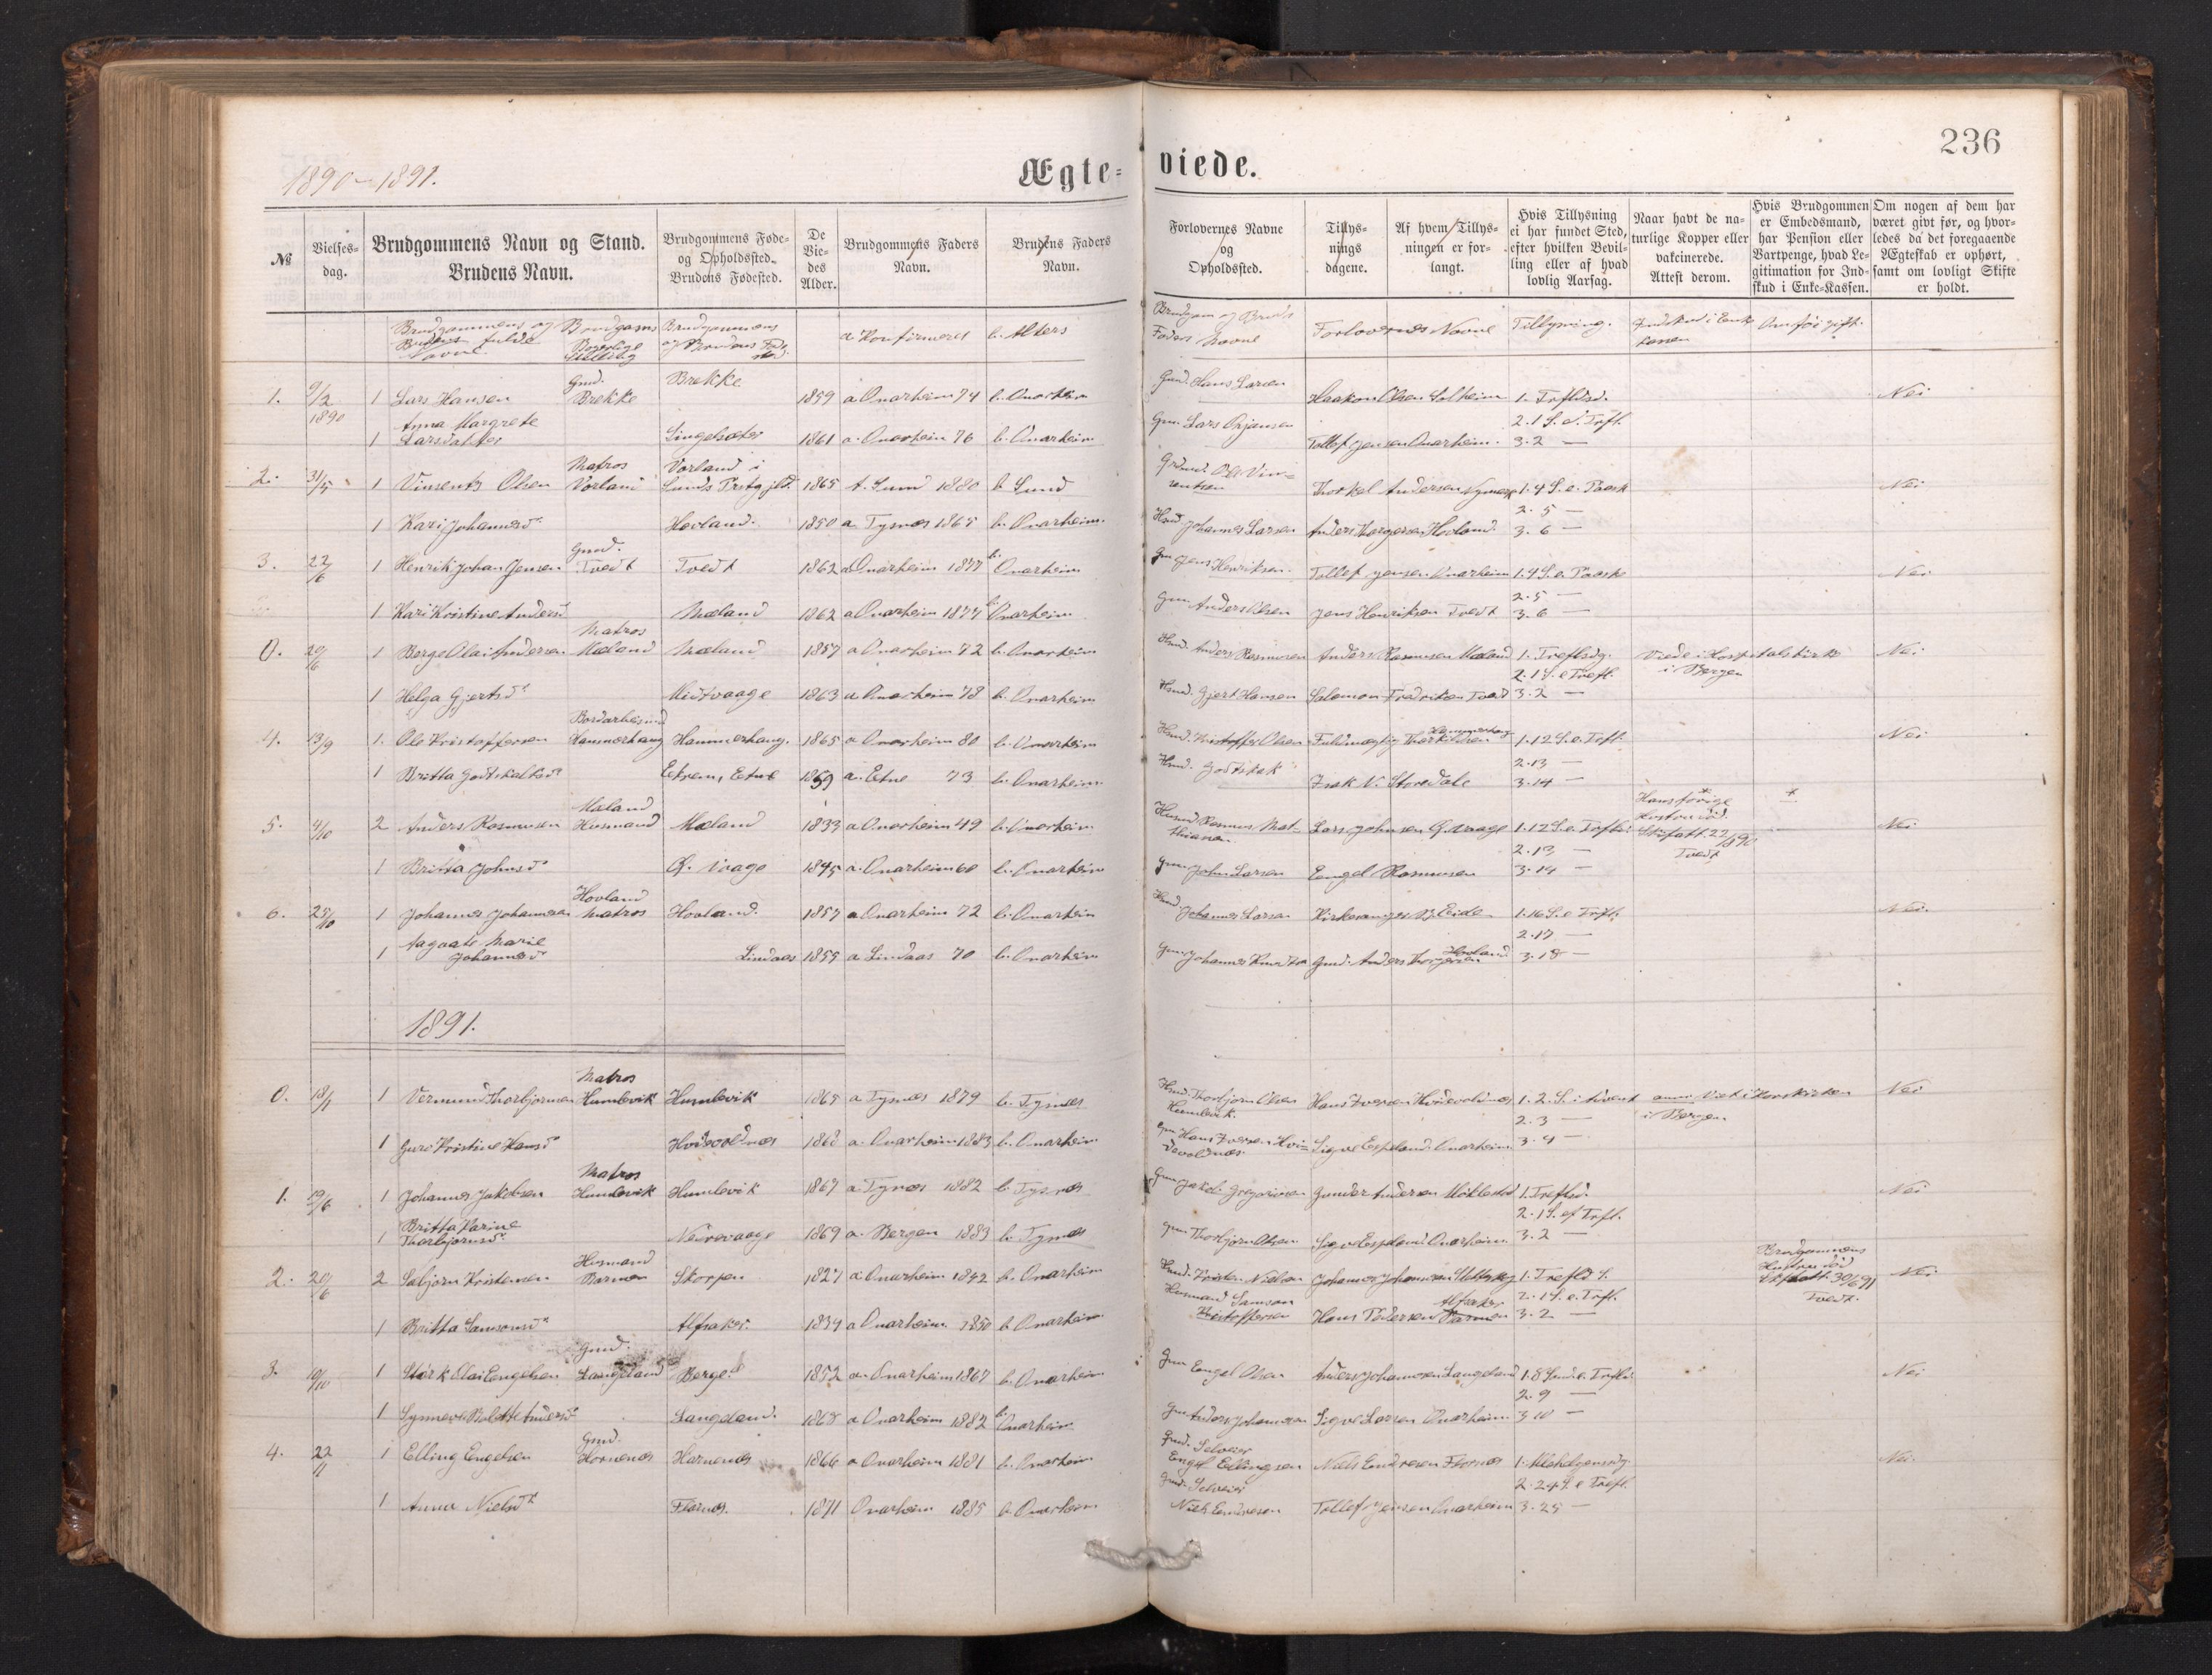 236
1890–1891.
Ægte- viede.
№
Vielses-dag.
Brudgommens Navn og Stand.
Brudens Navn.
Brudgommens Føde- og Opholdssted.
Brudens Fødested.
De Vie-des Alder.
Brudgommens Faders Navn.
Brudens Faders Navn.
Forlovernes Navne og Opholdssted.
Tillys-nings dagene.
Af hvem Tillys-ningen er for-langt.
Hvis Tillysning ei har fundet Sted, efter hvilken Bevil-ling eller af hvad lovlig Aarsag.
Naar havt de na-turlige Kopper eller vakcinerede. Attest derom.
Hvis Brudgommen er Embedsmand, har Pension eller Vartpenge, hvad Le-gitimation for Ind-skud i Enke-Kassen.
Om nogen af dem har været givt før, og hvor-ledes da det foregaaende Ægteskab er ophørt, samt om lovligt Skifte er holdt.
Brudgommens og Brudens fulde Navne Brudgoms Borgerlige Stilling Brudgommens og Brudens Fødested a Konfirmeret b. Alters Brudgom og Bruds Faders Navne Forlovernes Navne Tillysning. Indskud i Enke kassen Om før gift.
1. 9/2 1890 1 Lars Hansen Gmd. Brekke Brekke 1859 a Onarheim 74 b. Onarheim Gmd. Hans Larsen Haakon Olsen Solheim 1. Nei
1 Anna Margrete Larsdatter 1861 a. Onarheim 76 b. Onarheim Gm. Lars Tollef Jensen Onarheim. 3. 2 —
2. 31/5 1 Vinsents Olsen Matros Vorland Vorland i Lunds Prstgjld. 1865 a. Lund 1880 b Lund Ole Vinsentsen Thorkel Andersen 1. 4 S. e. Paask Nei
2. 5 —
1 Kari Johannesd. Hovland. 1850 a Tysnes 1865 b. Onarheim. Johannes Larsen Anders Hovland. 3. 6 —
3. 22/6 1 Henrik Johan Jensen Gmd. Tvedt Tvedt 1862 a Onarheim 1877 b. Onarheim Gm Jens Henriksen. Tollef Jensen Onarheim 1. 4 S. e. Paask Nei
2. 5 —
1 Kari Kristine Andersd. Mæland 1862 a Onarheim 1877 b. Onarheim Gm Anders Olsen Jens Henriksen Tvedt 3. 6 —
0. 20/6 1 Berge Olai Andersen Matros Mæland Mæland 1857 a Onarheim 72 b. Onarheim Hmd. Anders Rasmusen Anders Rasmusen Mæland 1. Treflsdg. Viede i Hospitalskirke i Bergen Nei
2. 1 S. e Trefl.
1 Helga Gjertsd. Midtvaage 1863 a Onarheim 78 b. Onarheim Hmd. Gjert Hansen Salomon Fredriksen Tvedt 3. 2 —
4. 13/9 1. Ole Kristoffersen Bordarbeismd Hammerhaug Hammerhaug. 1865 a Onarheim 80 b. Onarheim Hmd. Kristoffer Olsen Fuldmægtig Hammerhaug 1. 12 S. e. Trefl. Nei
2. 13 —
1 Britta Godtskalksd. Eikrem, Eitne 1859 a. Etne 73 b. Onarheim. Hmd. Godtskalk Isak N. Storedale 3. 14 —
5. 4/10 2 Anders Rasmusen Mæland Husmand Mæland 1833 a Onarheim 49 b. Onarheim Husmd Rasmus Mathiasen Lars Johnsen Ø. Vaage 1. 12 S. e. Trefl. Hans forrige Hustru død. Skifatt. 22/ 1890 Tvedt Nei
2. 13 —
1 Britta Johnsd. Ø. Vaage 1845 a. Onarheim 60 b. Onarheim Gm John Larsen Engel Rasmusen 3. 14 —
6. 25/10 1 Johannes Johannesen Hovland Matros Hovland. 1857 a Onarheim 72 b. Onarheim Hmd. Johannes Larsen Kirkesanger B. Eide 1. 16 S. e Trefl. Nei.
2. 17 —
1 Aagaate Marie Johannesd. Lindaas 1855 a Lindaas 70 b. Onarheim Gm Johannes Knudsen Gmd. Anders Hovland 3. 18 —
1891.
0. 18/1 1 Vermund Thorbjørnsen Matros Humlevik Humlevik 1865 a Tysnes 1879 b. Tysnes Hmd. Thorbjørn Olsen Humlevik. Hans Iversen Hvidevoldnes 1. 2. S. i Advent Viet i Korskirken i Bergen Nei
2. 3 —
1 Guri Kristine Hansd. Hvidevoldnes 1862 a. Onarheim 1883 b. Onarheim Gm Hans Iversen Hvidevoldnes. Sigve Espeland. Onarheim 3. 4 —
1. 19/6 1 Johannes Jakobsen Matros Humlevik Humlevik 1867 a Tysnes 1882 b. Tysnes Gm Jakob Gregoriusen Gunder Andersen 1. Treflsd. Nei
2. 1 S. ef Trefl.
1 Britta Karine Thorbjørnsd. Nedrevaage 1869 a. Bergen 1883 b. Tysnes Gm Thorbjørn Olsen Sigve Espeland. Onarheim. 3. 2 —
2. 20/6 2 Sæbjørn Kristensen Husmand Barmen Skorpen 1827 a Onarheim 1842 b. Onarheim Hmd. Kristen Nielsen Johannes Johannesen 1. Treflsd. Brudgommens Hustru død Skifatt. 30/6 91 Tvedt. Nei
2. 1 S. e. Trefl.
1 Britta Samsonsd. Alfsaker. 1834 a Onarheim. 1850 b. Onarheim. Husmand Samson Kristoffersen Hans Pedersen Alfsaker 3. 2 —
3. 10/10 1 Størk Olai Engelsen Gmd. Langeland Berge. 1852 a. Onarheim 1867 b. Onarheim Gm Engel Olsen Anders Johannesen Langeland 1. 8 Sønd. e. Trefld. Nei
2. 9 —
1 Synneve Bolette Andersd. Langeland. 1868 a Onarheim 1882 b. Onarheim Gm Anders Johannesen Sigve Larsen Onarheim. 3 10 —
4. 22/11 1 Elling Engelsen Gmd. Hornenes Hornenes 1866 a Onarheim 1881 b. Onarheim Gmd. Selveier Engel Ellingsen Niels Endresen Flornes 1. Allehelgensdg. Nei.
2. 24 S. e Trefl.
1 Anna Nielsd. Flornes. 1871 Onarheim 1885 b. Onarheim. Gmd. Selveier Niels Endresen Tollef Jensen Onarheim 3. 25 —